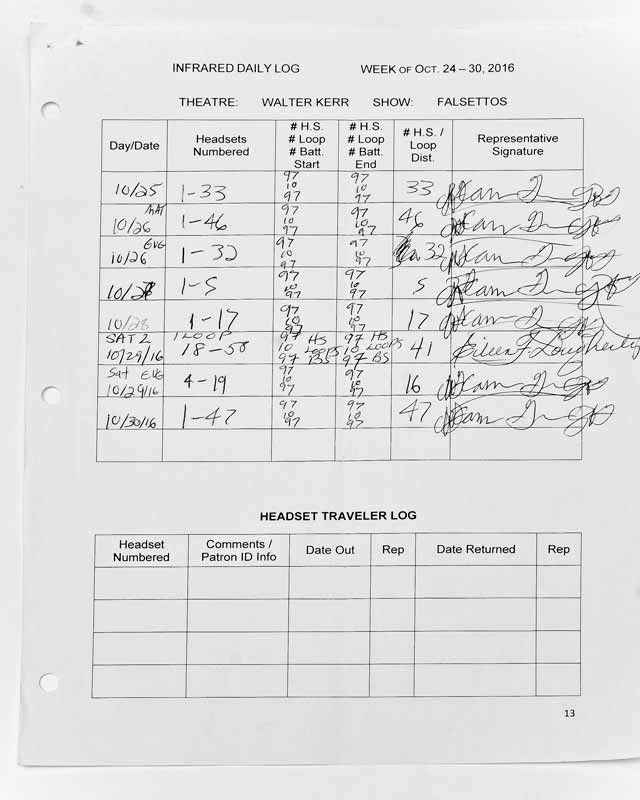 INFRARED DAILY LOG WEEK OF OCT. 24 – 30, 2016
THEATRE: WALTER KERR SHOW: FALSETTOS
Day/Date Headsets Numbered # H.S. # Loop # Batt. Start # H.S. # Loop # Batt. End # H.S. / Loop Dist. Representative Signature
10/25 1-33 97 10 97 97 10 97 33
10/26 MAT 1-46 97 10 97 97 10 97 46
10/26 EVG 1-32 97 10 97 97 10 97 32
1-5 97 10 97 97 10 97 5
10/28 1-17 97 10 97 97 10 97 17
SAT 2 10/29/16 1 LOOP 18-58 97 HS 10 LOOPS 97 BS 97 HS 10 LOOPS 97 BS 41 Eileen F. Lougherty
Sat EVG 10/29/16 4-19 97 10 97 97 10 97 16
10/30/16 1-47 97 10 97 97 10 97 47
HEADSET TRAVELER LOG
Headset Numbered Comments / Patron ID Info Date Out Rep Date Returned Rep
13